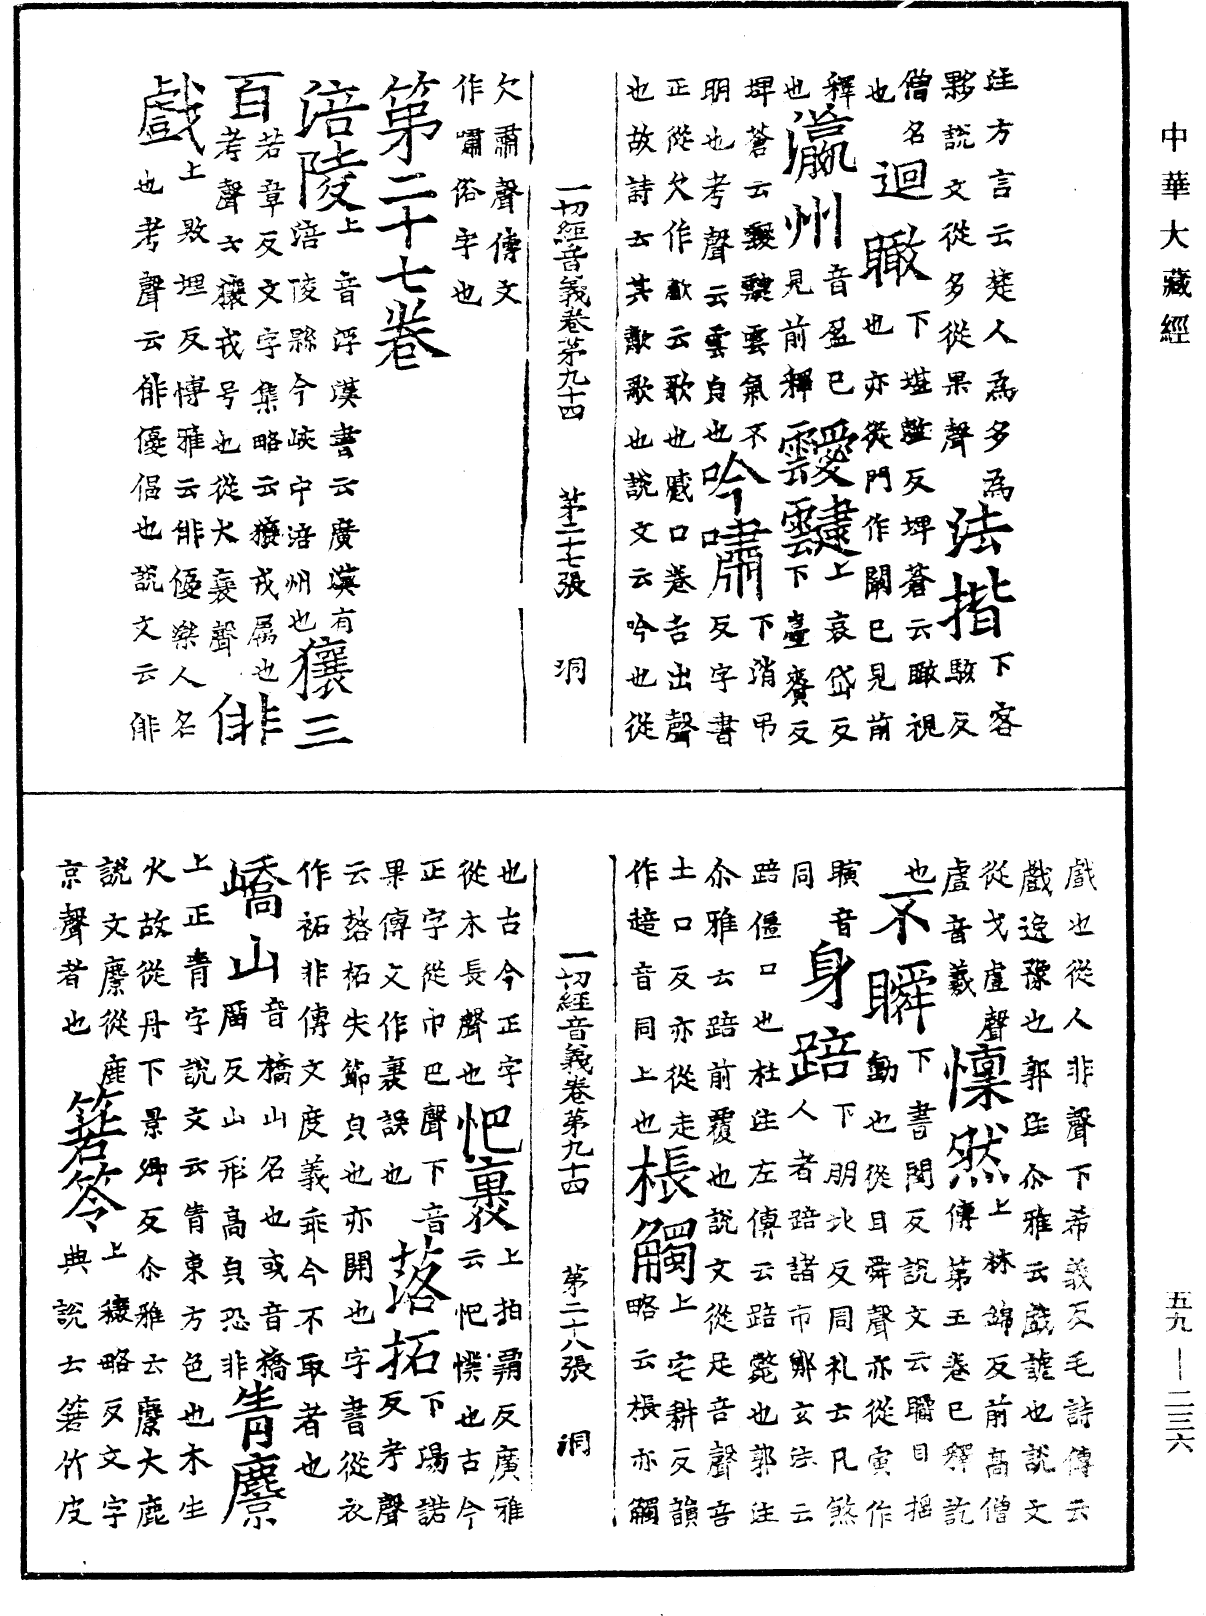 中華大藏經
注方言云楚人為多為
夥說文從多從果聲 法揩下客駭反
僧名也 迴瞰下堪濫反埤蒼云瞰視
也亦從門作闞已見前
釋也 瀛州音盈已見前釋 靉靆上哀岱反下臺賚反
埤蒼云靉靆雲氣不
明也考聲云雲皃也 吟嘯下消弔反字書
正從欠作歗云歌也蹙口卷舌出聲
也故詩云其歗歌也說文云吟也從
一切經音義卷第九十四 第二十七張 洞
欠肅聲傳文
作嘯俗字也
第二十七卷
涪陵上音浮漢書云廣漢有涪陵縣今峽中涪州也 獽三
百若章反文字集略云獽戎屬也考聲云獽戎号也從犬襄聲 俳
戲上敗埋反博雅云俳優樂人名也考聲云俳優倡也說文云俳
戲也從人非聲下希義反毛詩傳云
戲逸豫也郭注尒雅云戲謔也說文
從戈䖒聲 懍然上林錦反前高僧傳第五卷已釋訖
䖒音羲
也 不瞬下書閏反說文云瞚目搖動也從目舜聲亦從寅作
瞚音同 身踣下朋北反同札云凡煞人者踣諸市鄭玄注云
踣僵尸也杜注左傳云踣斃也郭注
尒雅云踣前覆也說文從足咅聲咅
土口反亦從走
作趋音同上也 棖觸上宅耕反韻略云棖亦觸
一切經音義卷第九十四 第二十八張 洞
也古今正字
從木長聲也 帊裹上拍罵反廣雅云帊幞也古今
正字從巾巴聲下音
果傳文作裹誤也 落拓下湯諾反考聲
云落拓失節皃也亦開也字書從衣
作袥非傳文度義乖今不取者也
嶠山音橋山名也或音橋廟反山形高皃恐非 青麖
上正青字說文云青東方色也木生
火故從丹下景卿反尒雅云麖大鹿
說文麖從鹿
京聲者也 箬笭上穰略反文字典說云箬竹皮
五九—二三六